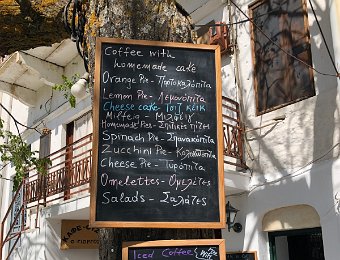 Coffee with
homemade cake
Orange Pie - Πορτοκαλόπιτα
Lemon Pie - Λεμονόπιτα
Cheese cake - Τσιζ κεικ
Milfeig - Μιλφέιγ
Homemade Pies - Σπιτικές πίτες
Spinach Pie - Σπανακόπιτα
Zucchini Pie - Κολοκυθόπιτα
Cheese Pie - Τυρόπιτα
Omelettes - Ομελέτες
Salads - Σαλάτες
Iced Coffee
ΚΑΦΕ-ΕΣΤ